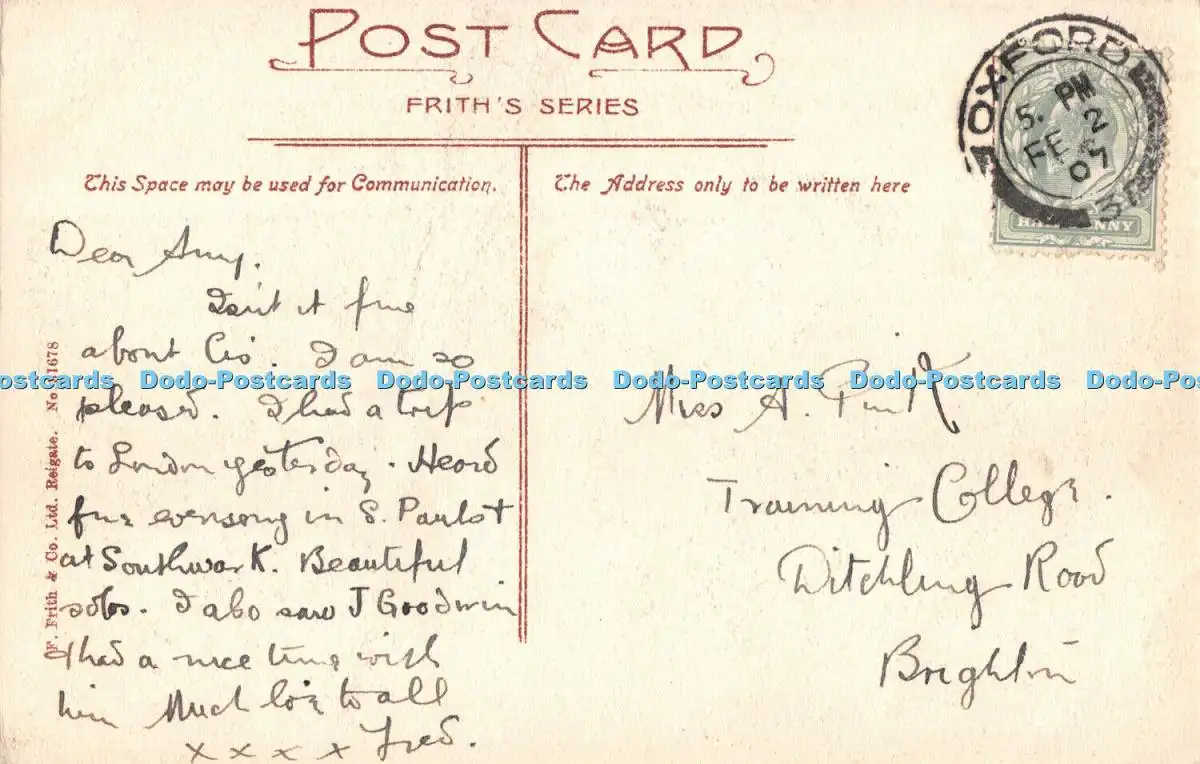 POST CARD
FRITH'S SERIES
This Space may be used for Communication.
The Address only to be written here
OXFORD
5. PM
FE 2
07
HALFPENNY
Dear Amy.
Isn't it fine
about Cis'. I am so
pleased. I had a trip
to London yesterday. Heard
fine evensong in S. Pauls +
at Southwark. Beautiful
solos. I also saw J Goodwin
+ had a nice time with
him Much love to all
x x x x Fred.
Miss A. Pink
Training College.
Ditchling Road
Brighton
F. Frith & Co. Ltd. Reigate. No. 51678
Dodo-Postcards Dodo-Postcards Dodo-Postcards Dodo-Postcards Dodo-Postcards Dodo-Postcards